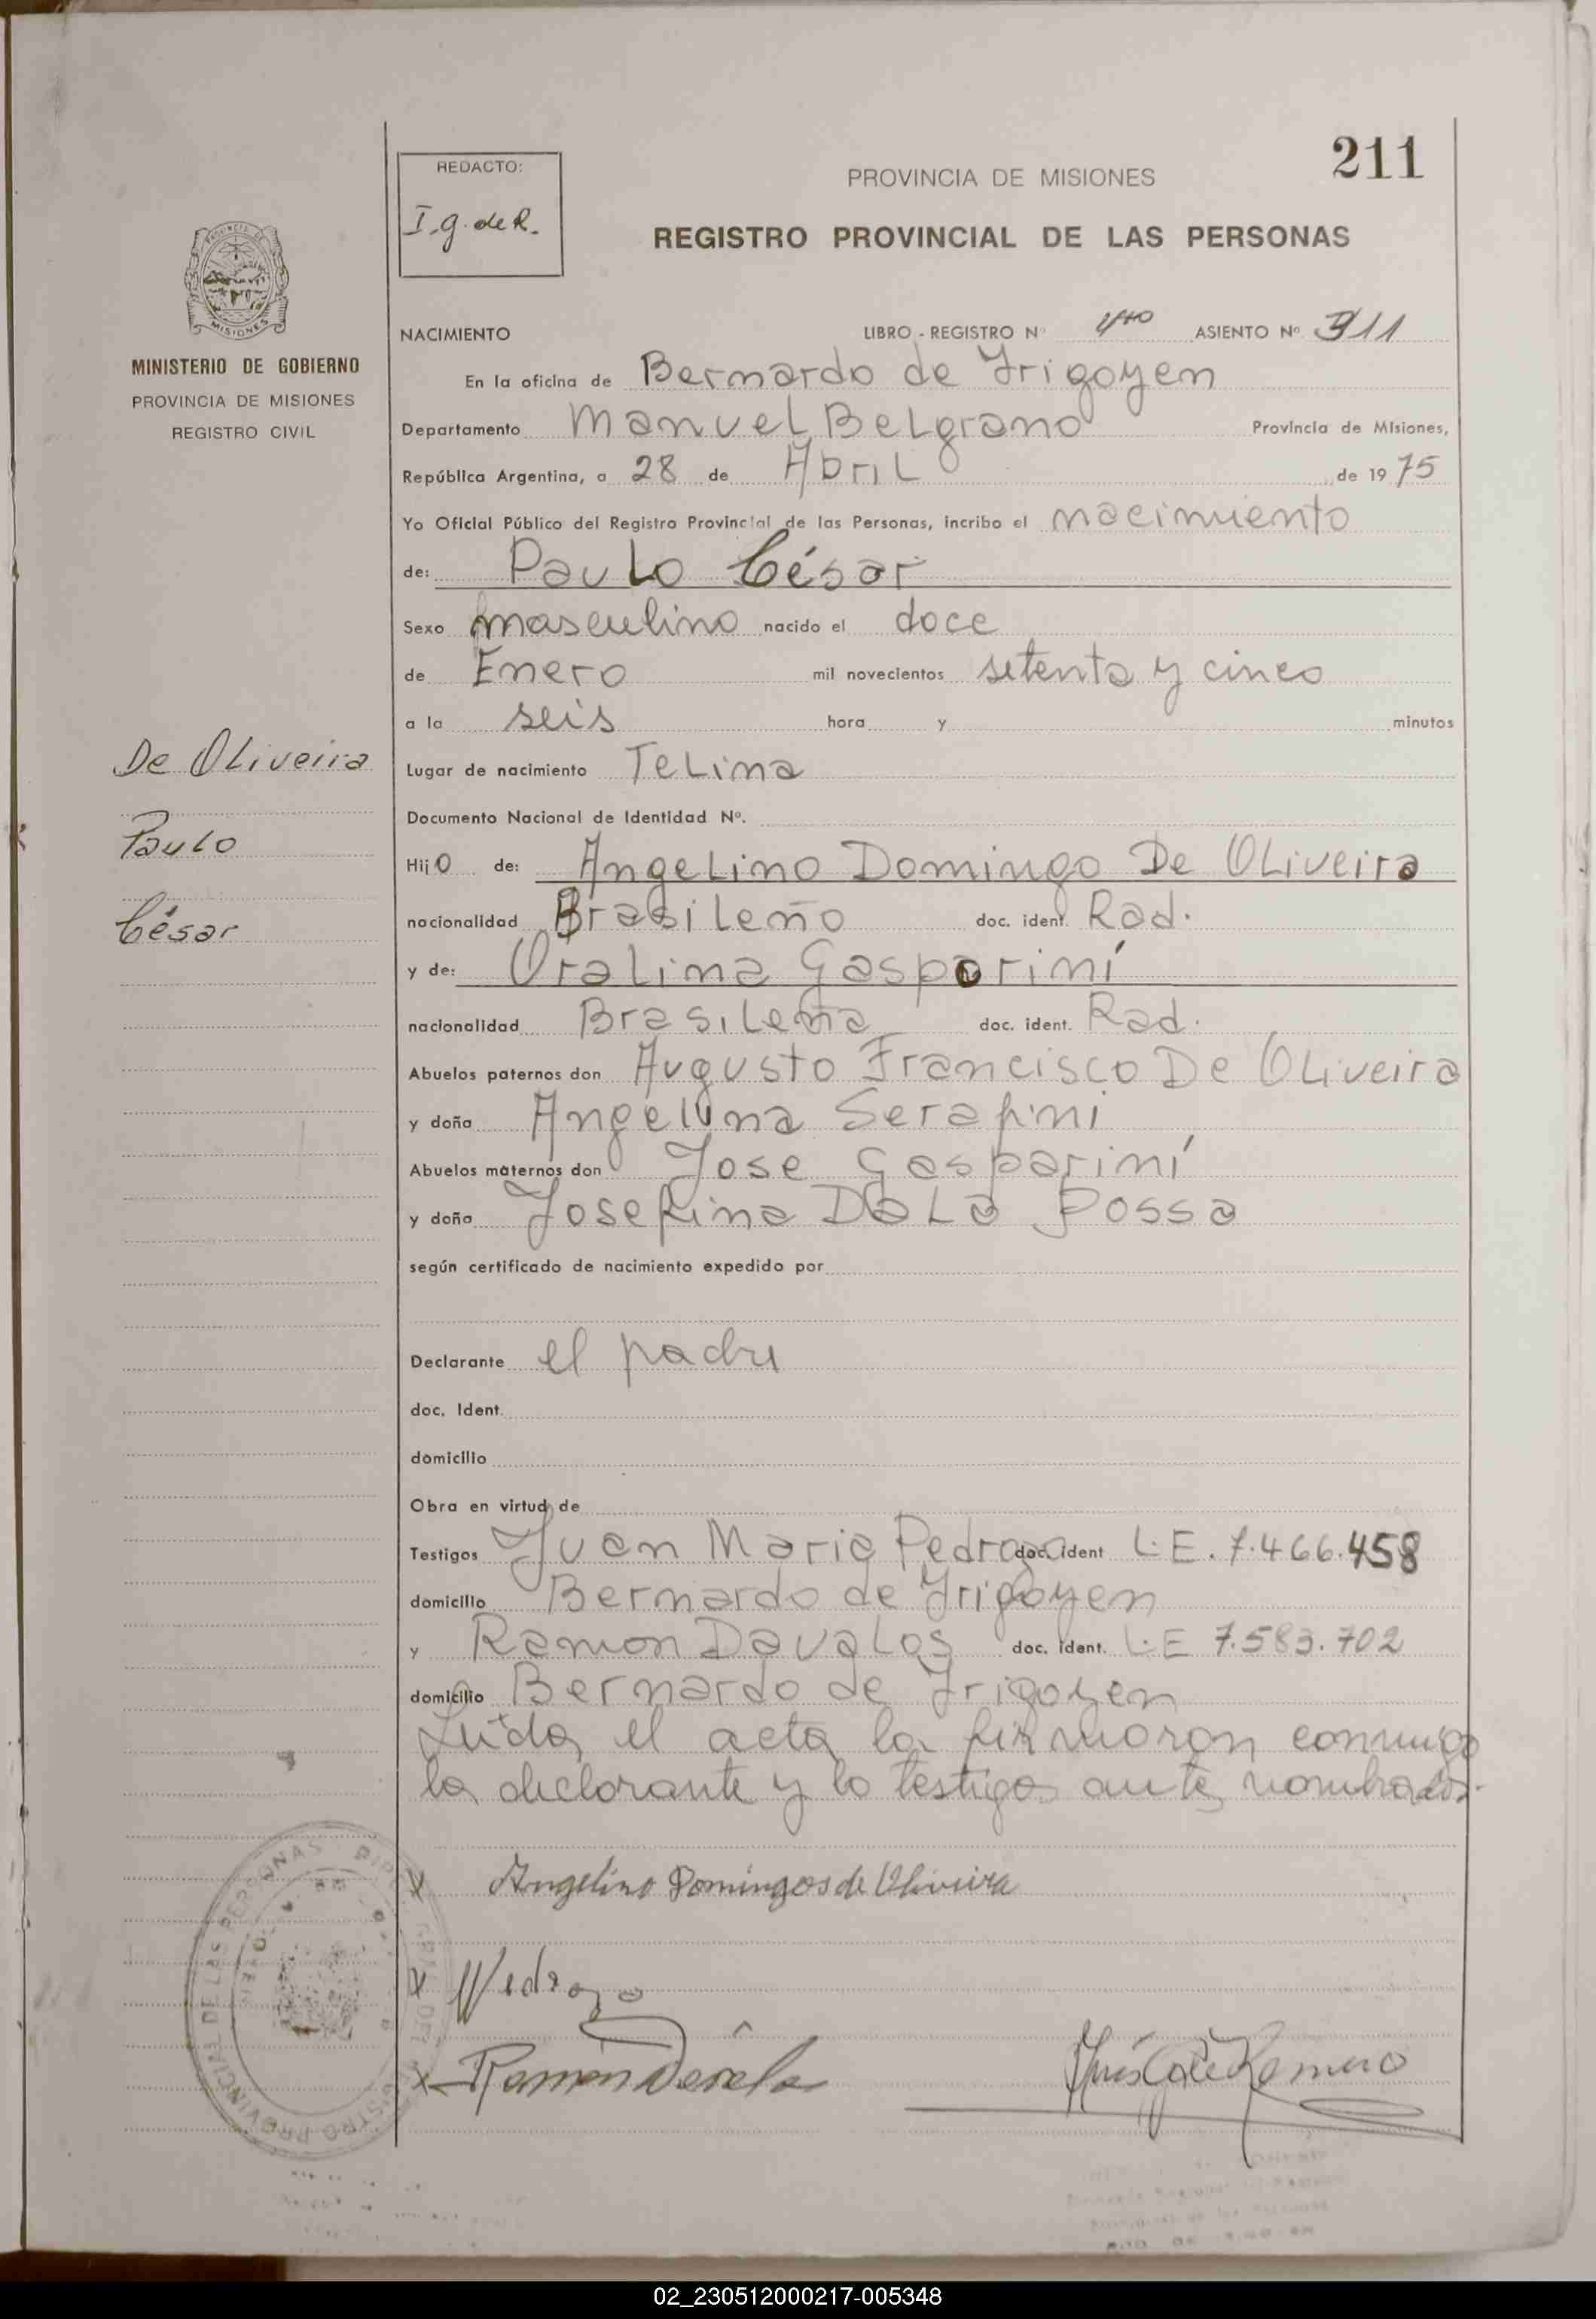 211
REDACTO:
I. g. de R.
PROVINCIA DE MISIONES
REGISTRO PROVINCIAL DE LAS PERSONAS
MISIONES
MINISTERIO DE GOBIERNO
PROVINCIA DE MISIONES
REGISTRO CIVIL
NACIMIENTO LIBRO - REGISTRO Nº ASIENTO Nº 311
En la oficina de Bernardo de Irigoyen
Departamento Manuel Belgrano Provincia de Misiones,
República Argentina, a 28 de Abril de 1975
Yo Oficial Público del Registro Provincial de las Personas, incribo el nacimiento
de: Paulo César
Sexo masculino nacido el doce
de Enero mil novecientos setenta y cinco
a la seis hora y minutos
De Oliveira
Paulo
César
Lugar de nacimiento Telina
Documento Nacional de Identidad Nº.
Hijo de: Angelino Domingo De Oliveira
nacionalidad Brasileño doc. ident. Rad.
y de: Oralina Gaspariní
nacionalidad Brasileña doc. ident. Rad.
Abuelos paternos don Augusto Francisco De Oliveira
y doña Angelina Serafini
Abuelos maternos don Jose Gaspariní
y doña Josefina Dala Possa
según certificado de nacimiento expedido por
Declarante el padre
doc. Ident.
domicilio
Obra en virtud de
Testigos Juan Maria Pedrozo doc. ident L.E. 7.466.458
domicilio Bernardo de Irigoyen
y Ramon Davalos doc. ident. L.E 7.583.702
domicilio Bernardo de Irigoyen
Leida el acta la firmaron conmigo
la declorante y lo testigos ante nombrados.
x Angelino Domingos de Oliveira
x
x Ramón
REGISTRO PROVINCIAL DE LAS PERSONAS
02_230512000217-005348